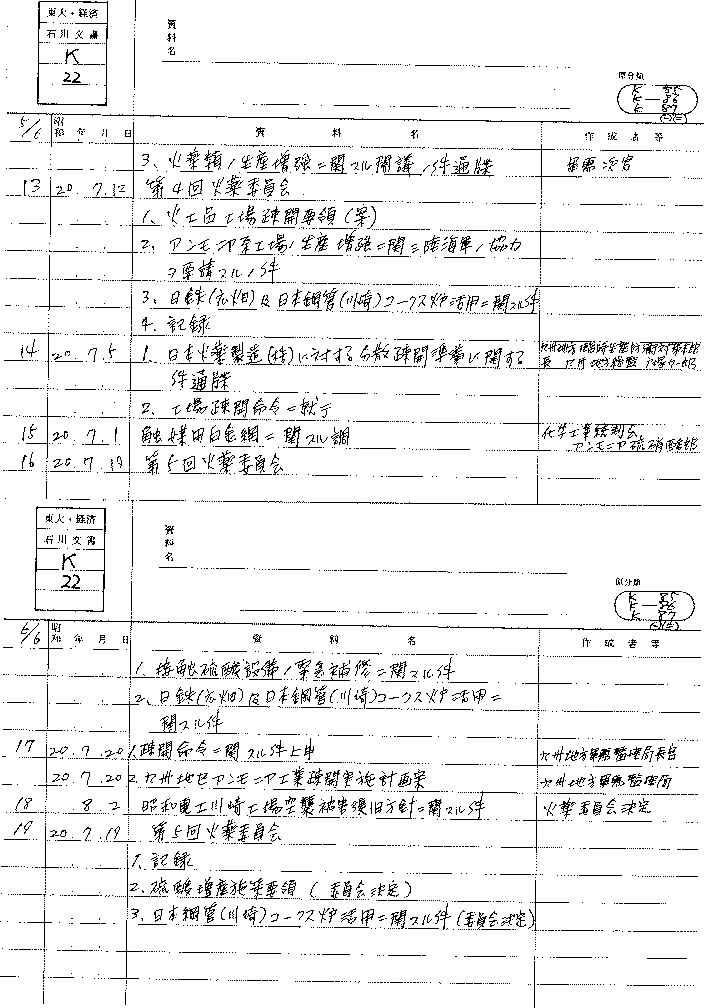 東大・経済
石川文書
K
22
資料名
原分類
K 85
K-86
K 87
(一)(二)
5/6 昭和 年 月 日 資料名 作成者等
3、火薬類ノ生産増強ニ関スル閣議ノ件通牒 軍需次官
13 20.7.12 第4回火薬委員会
1、火工品工場疎開要領(案)
2、アンモニヤ系工場ノ生産増強ニ関シ陸海軍ノ協力
ヲ要請スルノ件
3、日鉄(八幡)及日本鋼管(川崎)コークス炉活用ニ関スル件
4、記録
14 20.7.5 1、日本火薬製造(株)に対する分散疎開準備に関する
件通牒
2、工場疎開命令ニ就テ
15 20.7.1 触媒用白金網ニ関スル調 化学工業統制会
アンモニヤ硫硝酸部
16 20.7.19 第5回火薬委員会
東大・経済
石川文書
K
22
資料名
原分類
K 85
K-86
K 87
(一)(二)
6/6 昭和 年 月 日 資料名 作成者等
1、接触硫酸設備ノ緊急補修ニ関スル件
2、日鉄(八幡)及日本鋼管(川崎)コークス炉活用ニ
関スル件
17 20.7.20 1.疎開命令ニ関スル件上申 九州地方軍需監理局長官
20.7.20 2.九州地区アンモニア工業疎開実施計画案 九州地方軍需監理局
18 8 2 昭和電工川崎工場空襲被害復旧方針ニ関スル件 火薬委員会決定
19 20.7.19 第5回火薬委員会
1.記録
2.硫酸増産施策要領(委員会決定)
3、日本鋼管(川崎)コークス炉活用ニ関スル件(委員会決定)